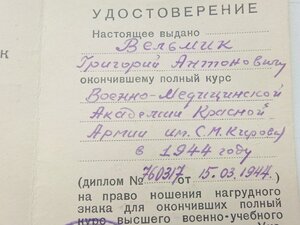 УДОСТОВЕРЕНИЕ
Настоящее выдано
Вельмик
Григорий Антонович
окончившему полный курс
Военно-Медицинской
Академии Красной
Армии им. С.М. Кирова
в 1944 году
(диплом № 760317 от 15.03.1944.
на право ношения нагрудного
знака для окончивших полный
курс высшего военно-учебного